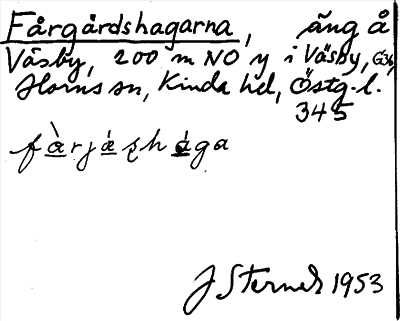 Fårgårdshagarna, äng å
Väsby, 200 m NO y i Väsby, G36,
Horns sn, Kinda hd, Östg. l.
345
fàrjáṣhága
J Sterner 1953